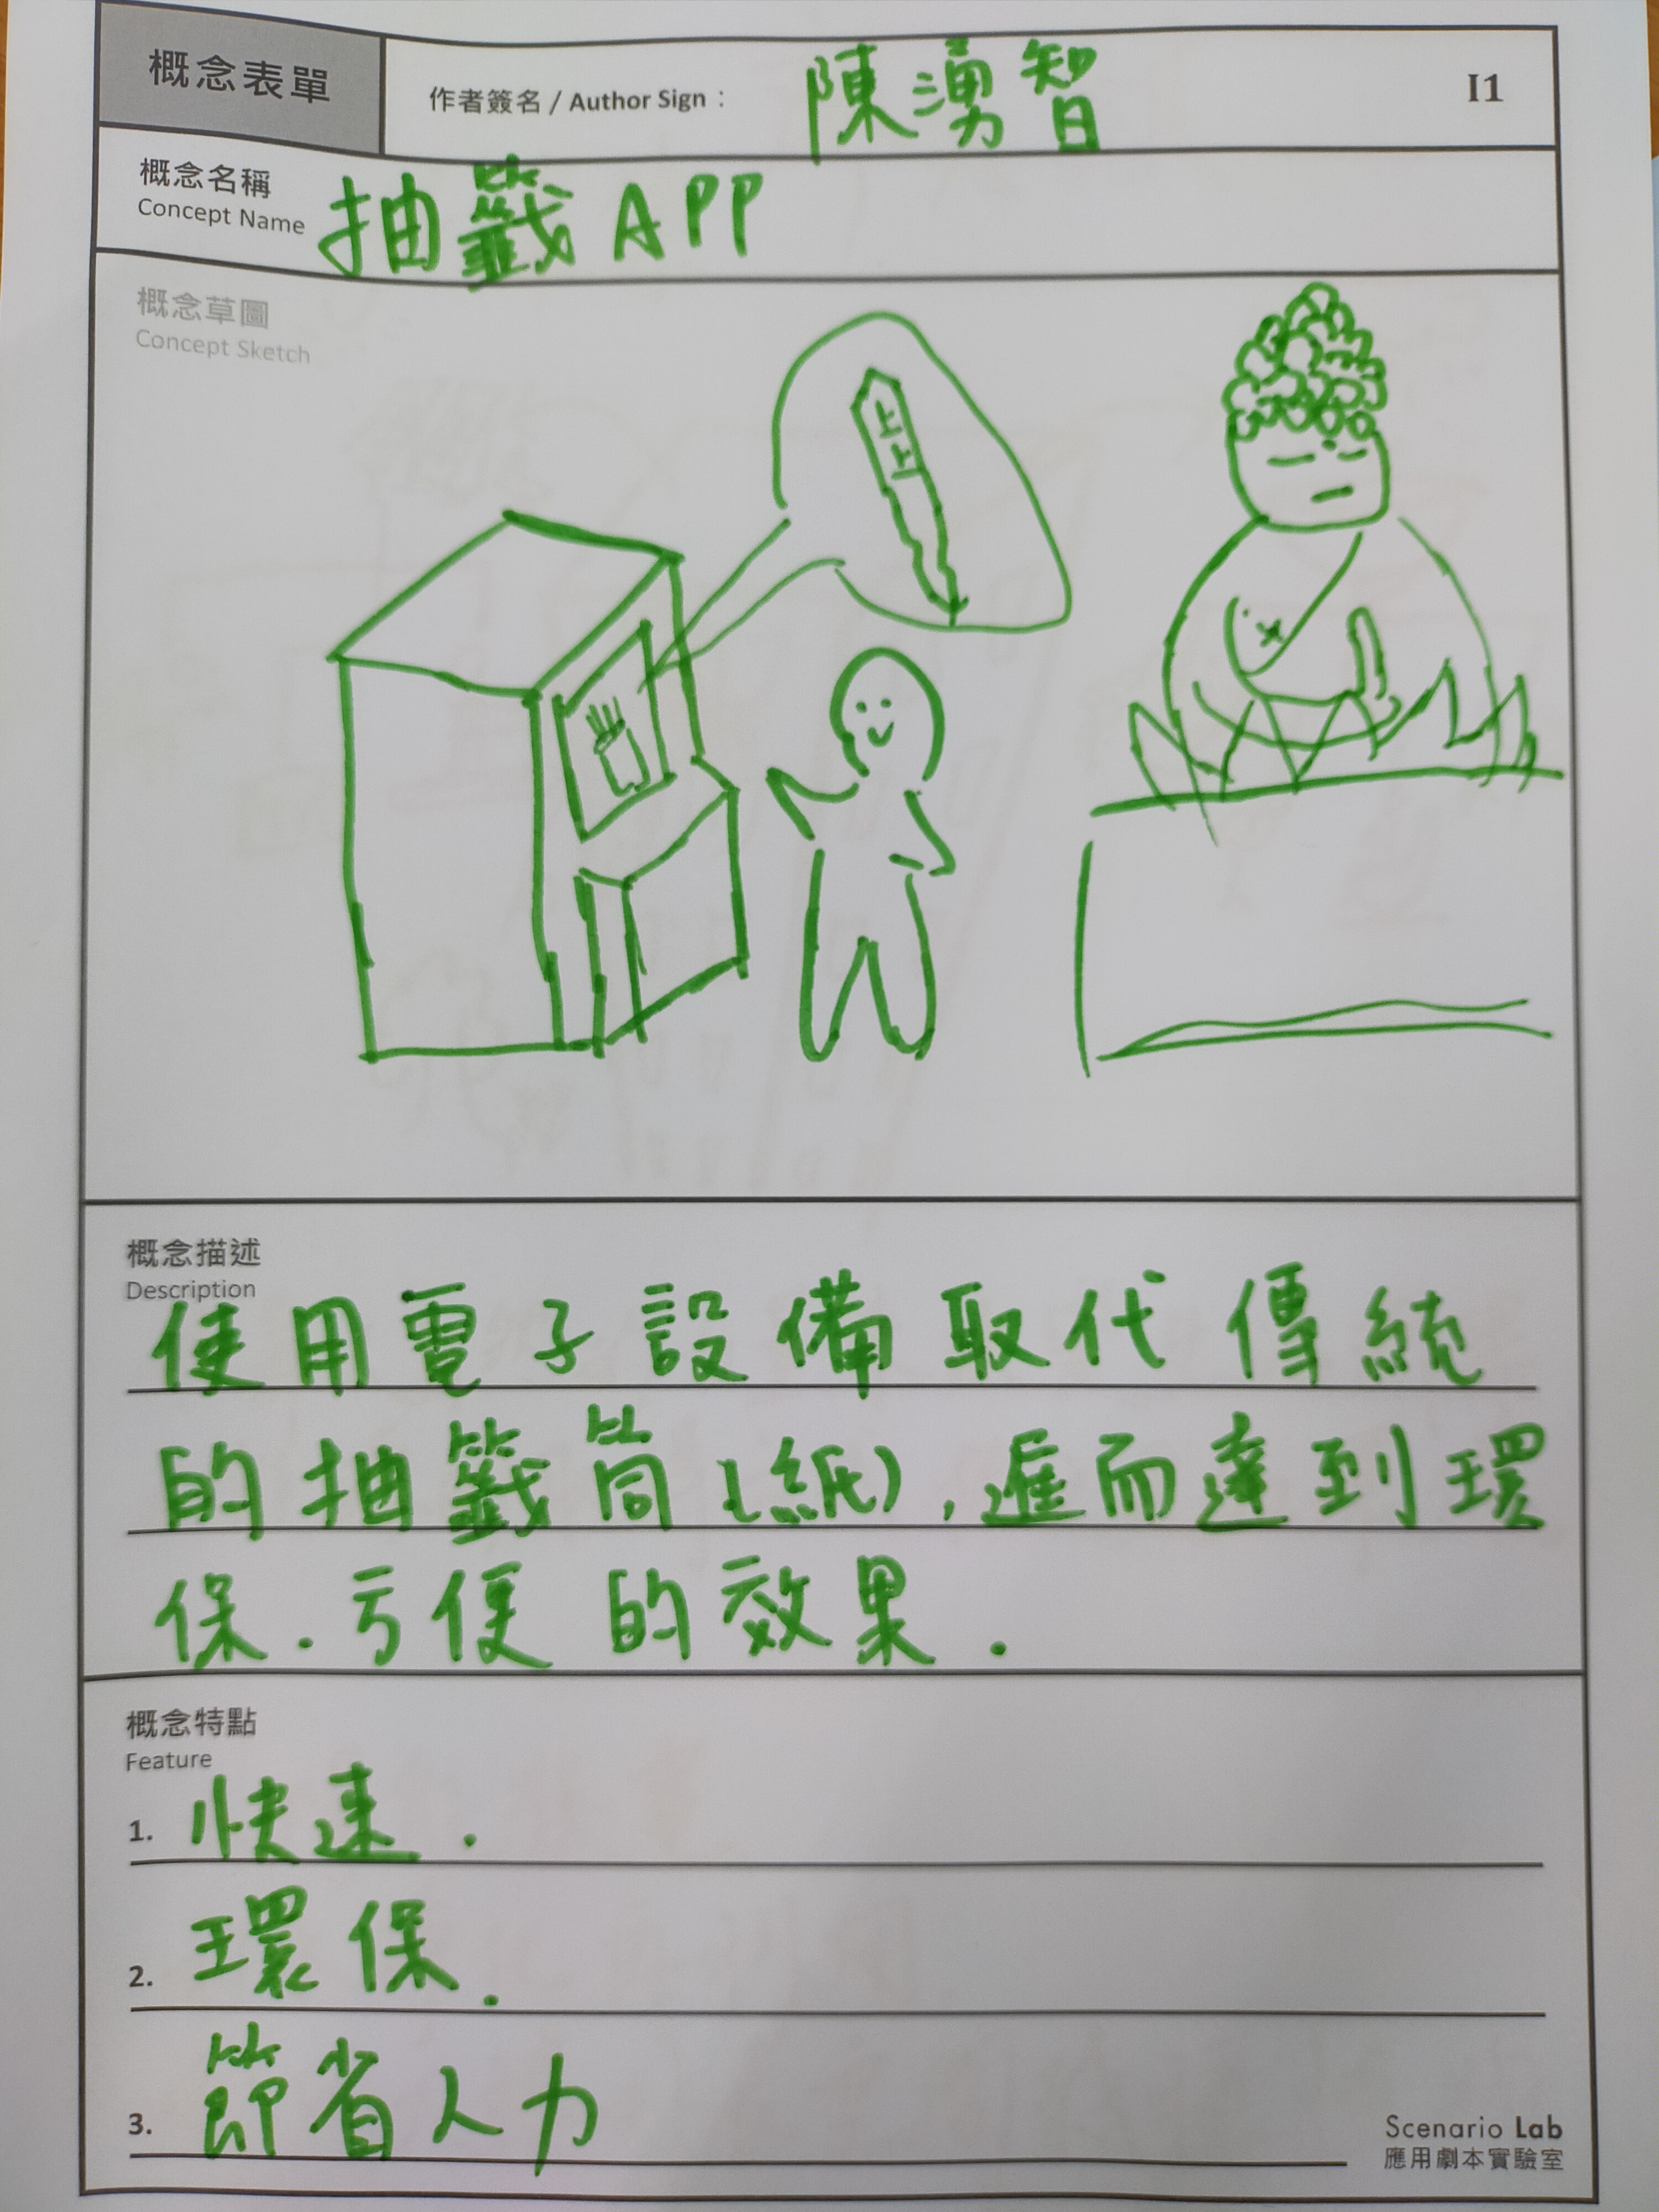 概念表單
作者簽名 / Author Sign： 陳湧智
I1
概念名稱
Concept Name
抽籤 APP
概念草圖
Concept Sketch
上上
概念描述
Description
使用電子設備取代傳統
的抽籤筒(紙),進而達到環
保.方便的效果.
概念特點
Feature
1. 快速.
2. 環保.
3. 節省人力
Scenario Lab
應用劇本實驗室